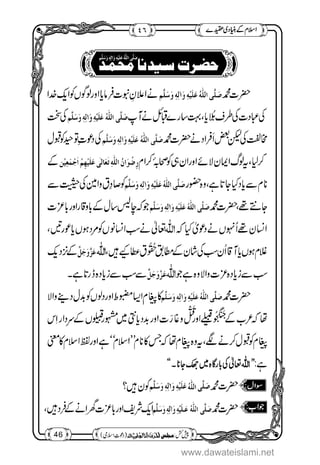 اسلام کے بنیادی عقیدے ٤٦
حضرت سیدنا مُحَمَّد صَلَّى اللهُ عَلَيْهِ وَآلِهِ وَسَلَّم
حضرت محمد صَلَّى اللهُ عَلَيْهِ وَآلِهِ وَسَلَّم نے اعلانِ نبوت فرمایا اور لوگوں کو ایک خدا
کی عبادت کی طرف بلایا، بہت سارے قبائل نے آپ صَلَّى اللهُ عَلَيْهِ وَآلِهِ وَسَلَّم کی سخت
مخالفت کی لیکن بعض افراد نے حضرت محمد صَلَّى اللهُ عَلَيْهِ وَآلِهِ وَسَلَّم کی دعوتِ توحید کو قبول
کر لیا، یہ لوگ ایمان لائے اور یہی صحابہ کرام رِضْوَانُ اللهِ تَعَالٰى عَلَيْهِمْ اَجْمَعِيْن کے
نام سے یاد کیا جاتا ہے، وہ حضور صَلَّى اللهُ عَلَيْهِ وَآلِهِ وَسَلَّم کو صادق و امین کی حیثیت سے
جانتے تھے، حضرت محمد صَلَّى اللهُ عَلَيْهِ وَآلِهِ وَسَلَّم جو کہ چالیس سال کے باوقار اور باعزت
انسان تھے انہوں نے دعویٰ کیا کہ اللہ تعالیٰ نے سب انسانوں کو خواہ وہ مرد ہوں یا عورتیں،
غلام ہوں یا آقا ان سب کی شان کے مطابق حقوق عطا کیے ہیں، اللہ عَزَّوَجَلَّ کے نزدیک
سب سے زیادہ عزت والا وہ ہے جو اللہ عَزَّوَجَلَّ سے سب سے زیادہ ڈرتا ہے۔
حضرت محمد صَلَّى اللهُ عَلَيْهِ وَآلِهِ وَسَلَّم کا پیغام ایسا مضبوط اور دلوں کو ہلا دینے والا
تھا کہ عرب کے جنگجو قبیلے اور قتل و غارت اور بدی میں مشہور قبیلوں کے سردار اس
پیغام کو قبول کرنے لگے، وہ یہ پیغام تھا کہ جس کا نام ”اسلام“ ہے اور لفظ اسلام کا معنی
ہے: ”اللہ تعالیٰ کی بارگاہ میں جھک جانا“۔
سوال حضرت محمد صَلَّى اللهُ عَلَيْهِ وَآلِهِ وَسَلَّم کون ہیں؟
جواب حضرت محمد صَلَّى اللهُ عَلَيْهِ وَآلِهِ وَسَلَّم ایک شریف اور باعزت گھرانے کے فرد ہیں،
46
www.dawateislami.net